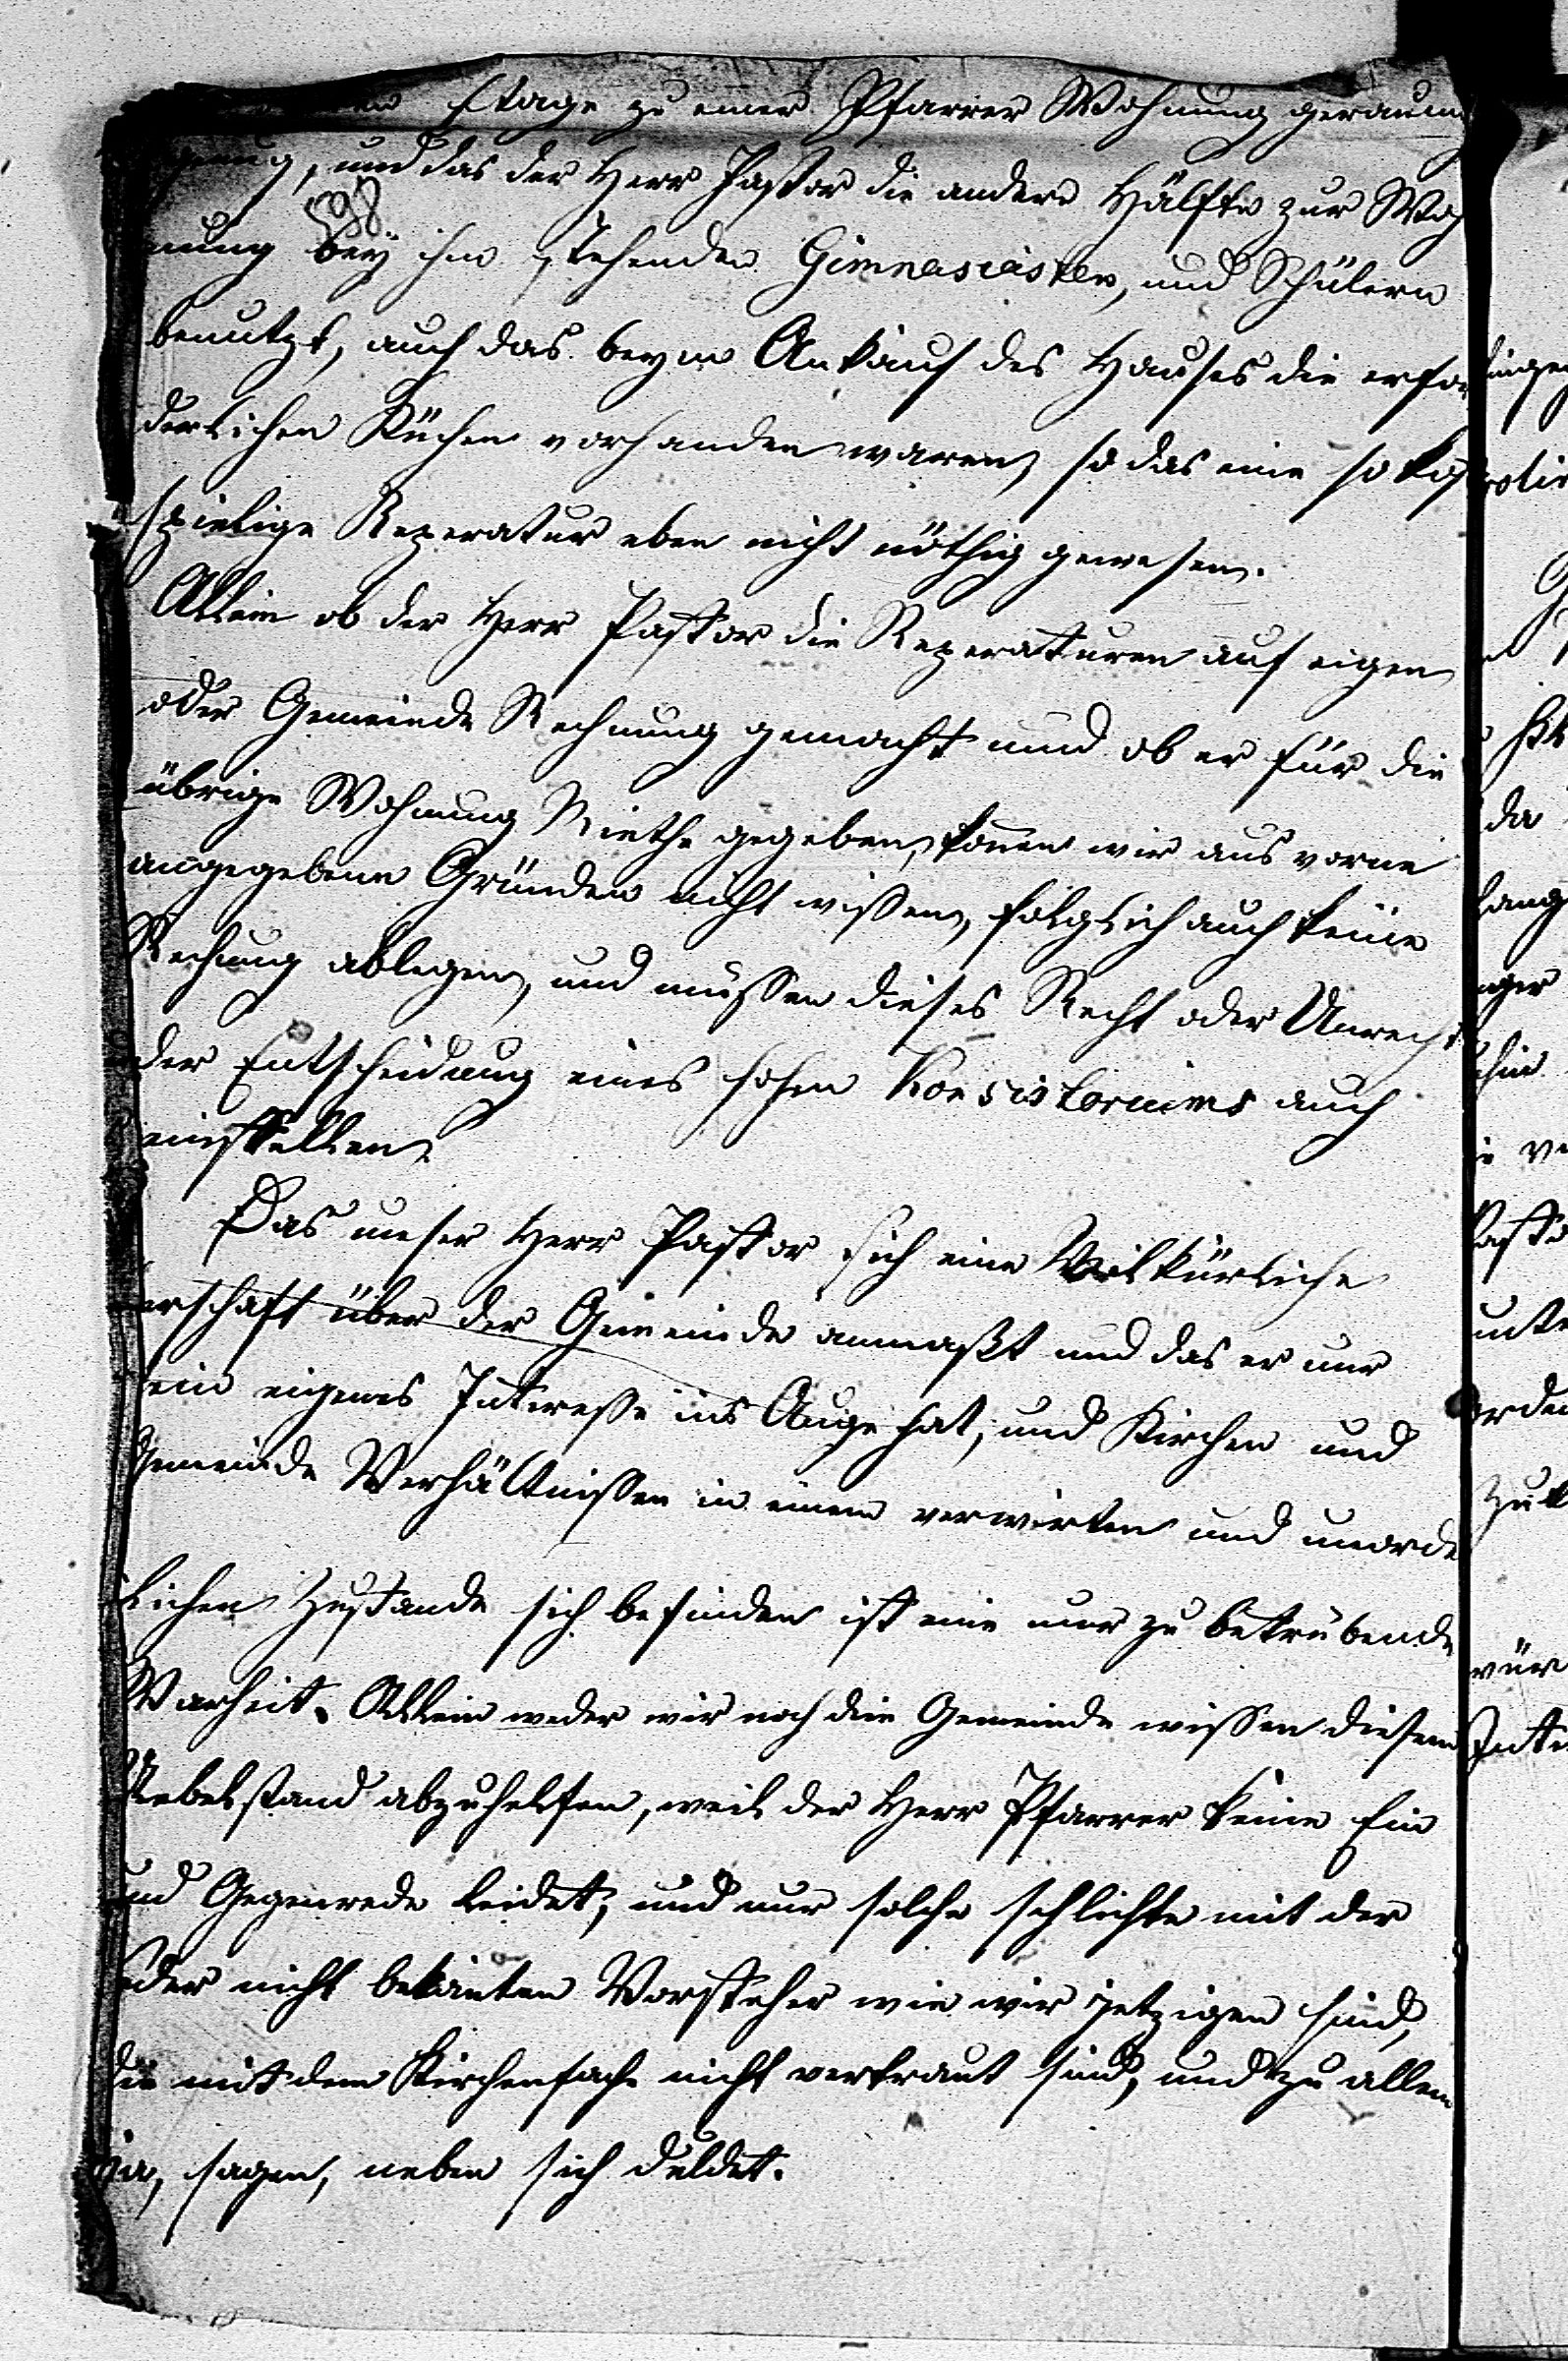 Etage zu einer Pfarrer Wohnung geraum
genug, und das der Herr Pastor die andere Hälfte zur Woh
598
nung bey ihm stehenden Gimnasiasten, und Schülern
benutzt, auch das beym Ankauf des Hauses die erfor
derlichen Küchen vorhanden waren, so das eine so kost
spielige Reperatur eben nicht nöthig gewesen.
Allein ob der Herr Pastor die Reperaturen auf eigen
oder Gemeinde Rechnung gemacht und ob er für die
übrige Wohnung Miethe gegeben, können wir aus vorne
angegebene Gründen nicht wißen, folglich auch keine
Rechnung ablegen, und müßen dieses Recht oder Unrecht
der Entscheidung eines hohen Konsistoriums auch
einstellen.
Das unser Herr Pastor sich eine Wilkürliche
erschaft über der Gemeinde anmaßt und das er nur
sein eigenes Interesse ins Auge hat, und Kirchen und
Gemeinde Verhältnißen in einem verwirten und unorde
lichen Zustande sich befinden ist eine nur zu betrübende
Warheit. Allein weder wir noch die Gemeinde wissen diesem
Uebelstand abzuhelfen, weil der Herr Pfarrer keine Ein
und Gegenrede leidet, und nur solche schlichte mit der
Feder nicht bekanten Vorsteher wie wir jetzigen sind,
die mit dem Kirchenfache nicht vertraut sind, und zu allem
ja, sagen, neben sich duldet.